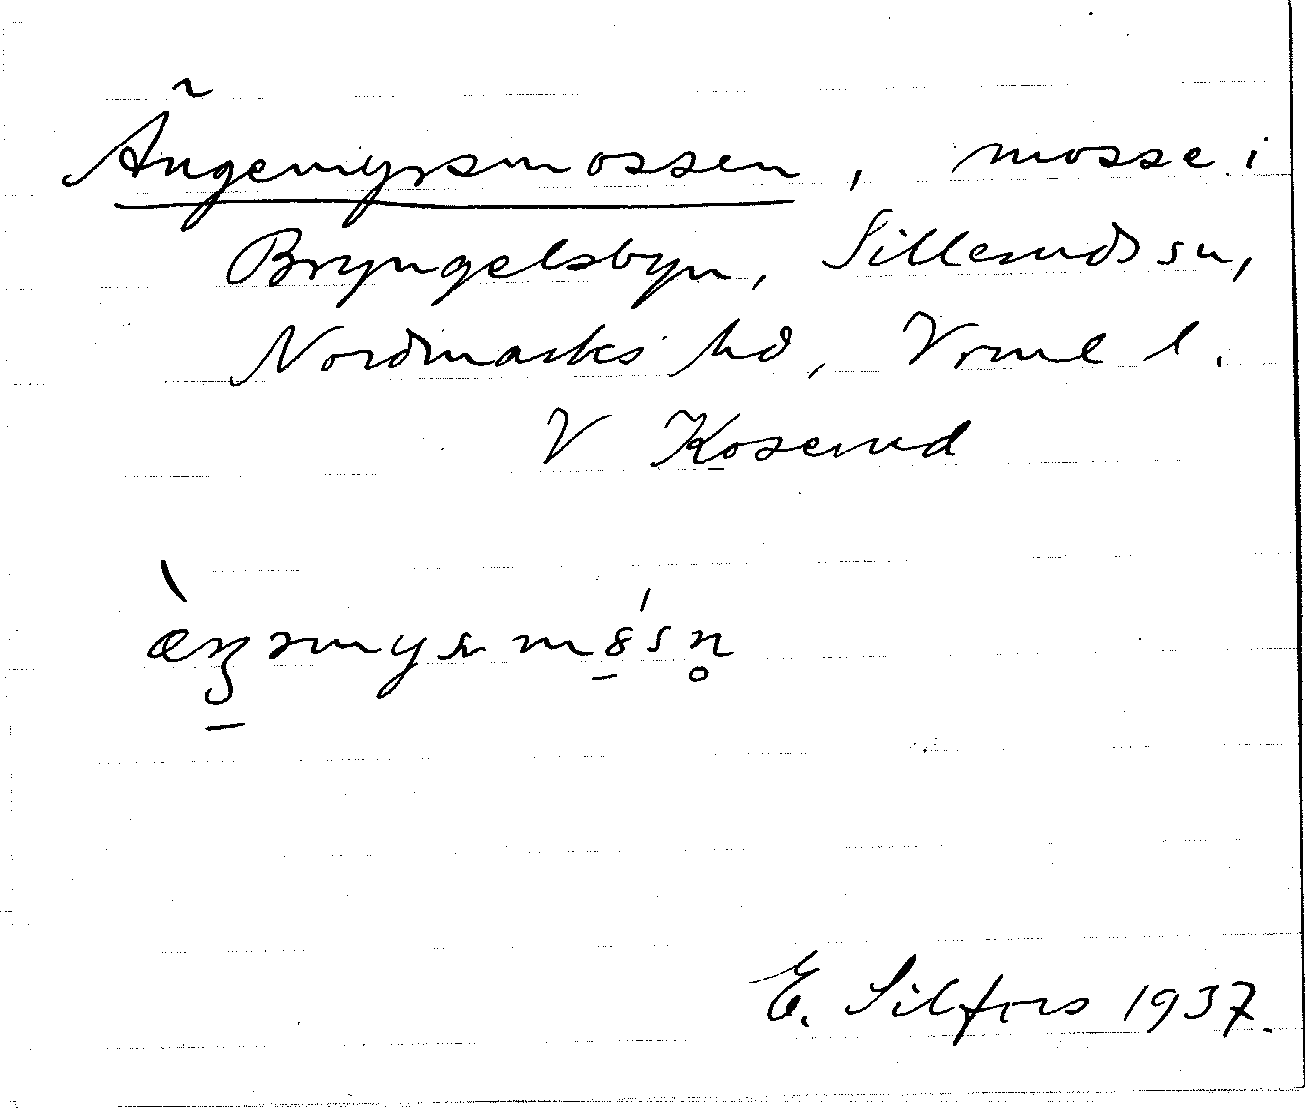 Ängemyrsmossen, mosse i
Bryngelsbyn, Sillerud sn,
Nordmarks hd, Vrml l.
V Koserud
E. Silfors 1937.